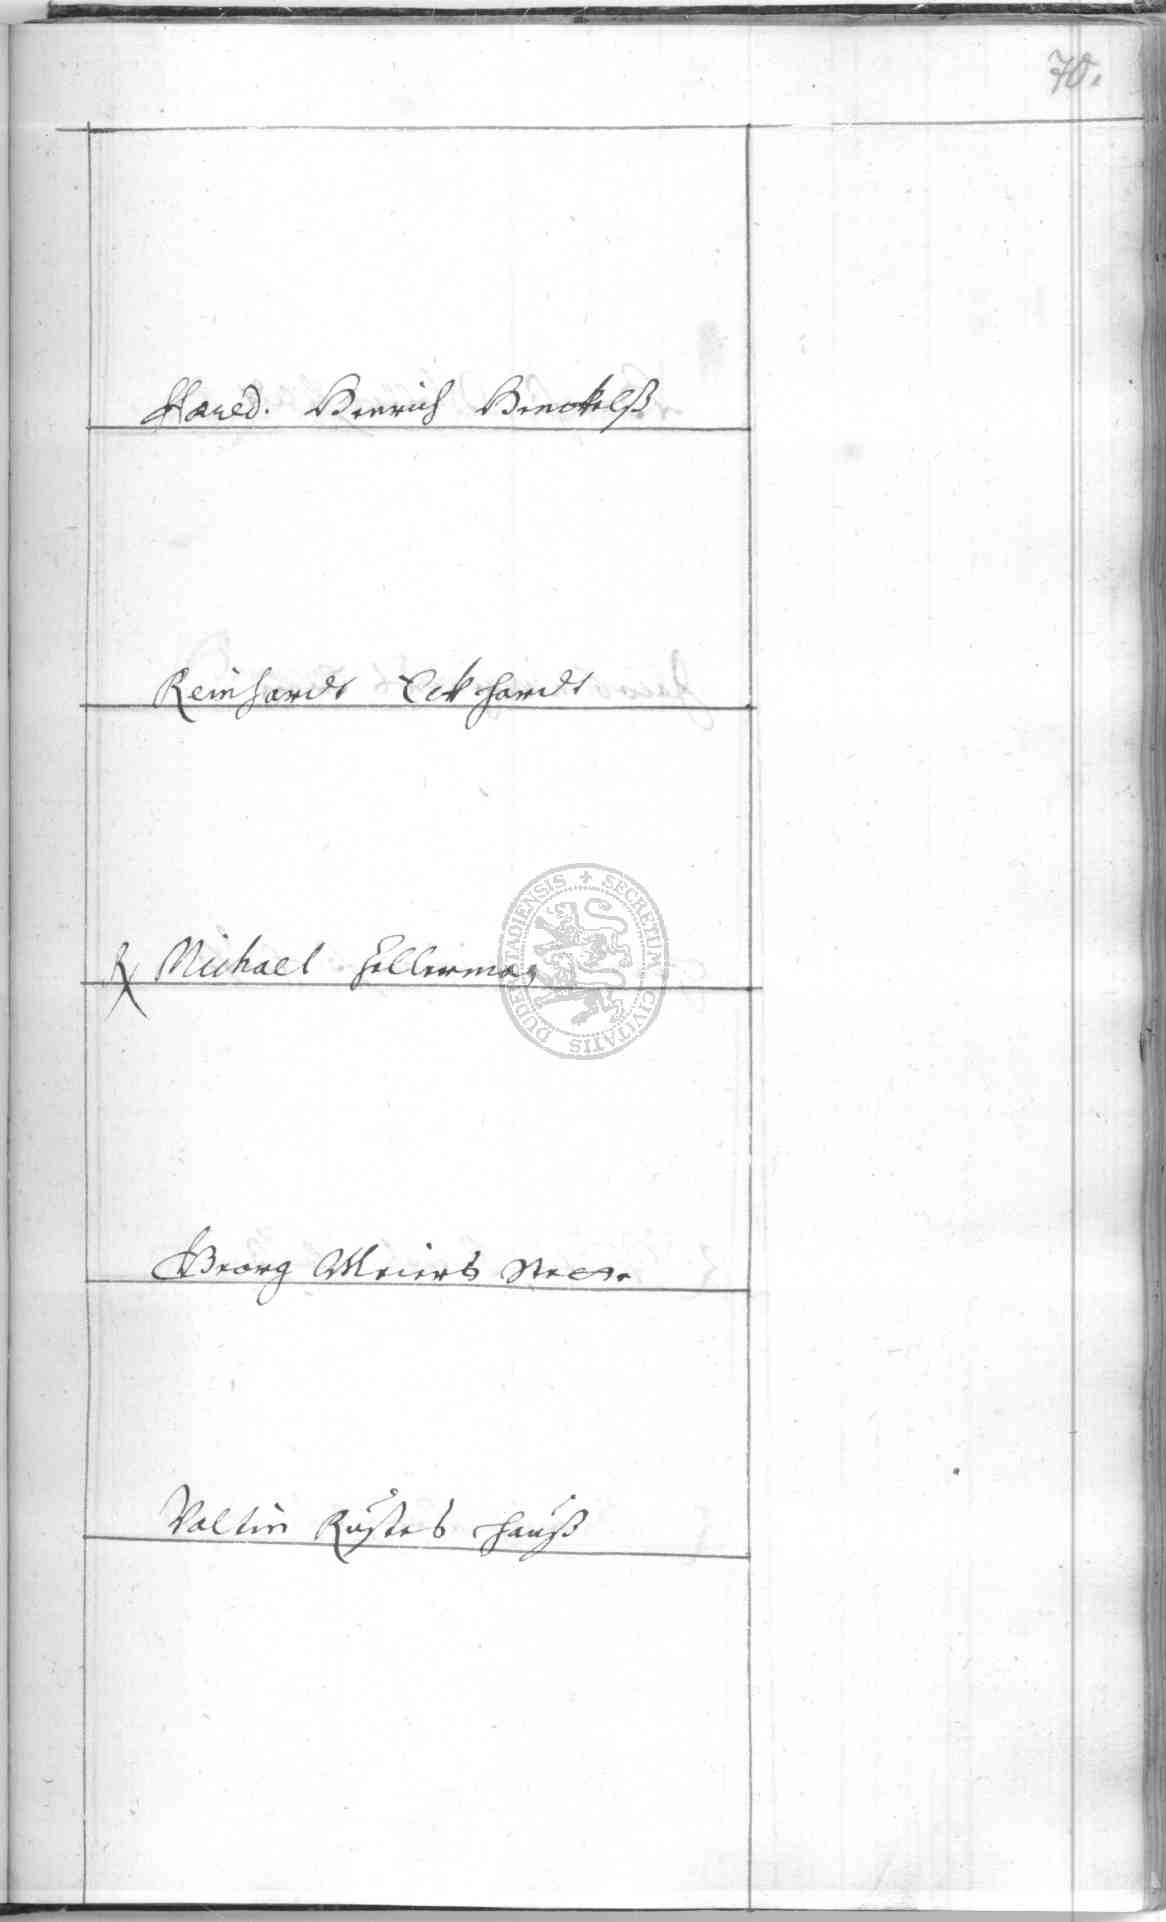 70.
Haered. Henrich Henckelß
Reinhardt Eckhardt
Michael Hellerman
Georg Meiers
Valtin Rüstes Hauß
SECRETUM CIVITATIS DUDERSTADIENSIS